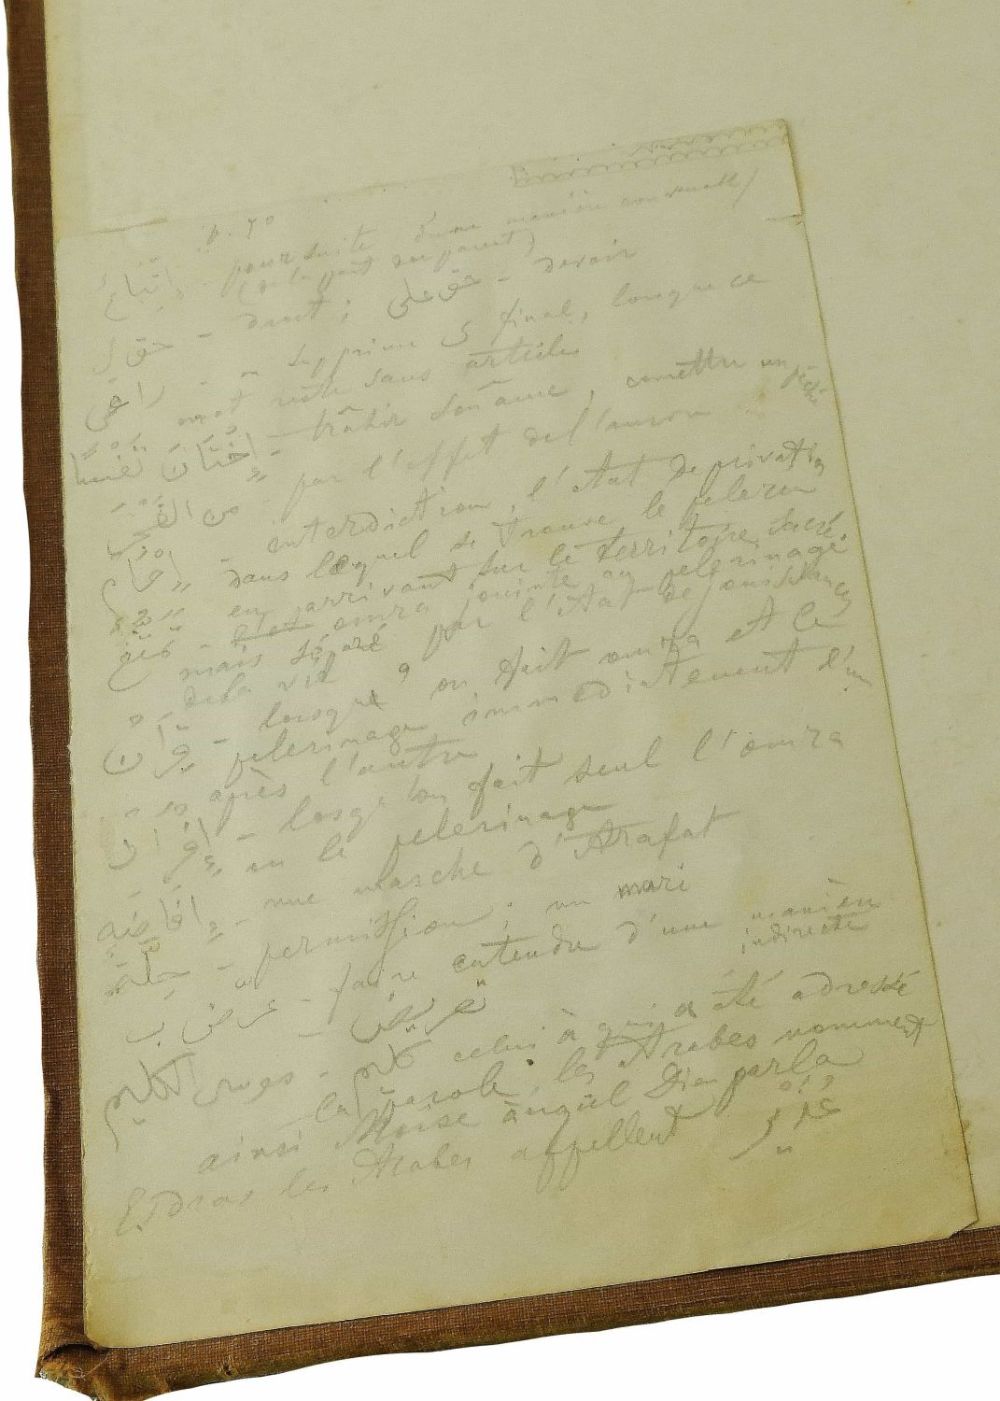 p. 40
اِتِّبَاعٌ - poursuite d'une manière convenable
(de la part du parent)
حق ل - droit ; حق على - devoir
راعى - supprime ى final, lorsque ce
mot reste sans article
اِخْتَانَ نَفْسًا - trahir son âme, comettre un péché
مِنَ الفَجْرِ - par l'effet de l'aurore
اِحْرَام - interdiction, l'état de privation
dans lequel se trouve le pelerin
en arrivant sur le territoire sacré.
تمتّع - omra jointe au pelerinage
mais séparé par l'état de jouissances
de la vie
قِرَانٌ - lorsque on fait omra et le
pelerinage immediatement l'un
après l'autre
اِفْرَادٌ - losqe l'on fait seul l'omra
ou le pelerinage
اِفَاضَة - une marche d'Arafat
حِلَّة - permission ; un mari
عرض ب - faire entendre d'une manière indirecte
تعريض
موسى الكليم - كليم celui à qui a été adressé
la parole, les Arabes nomment
ainsi Moïse auquel Dieu parla
Esdras les Arabes appellent عُزَيْر